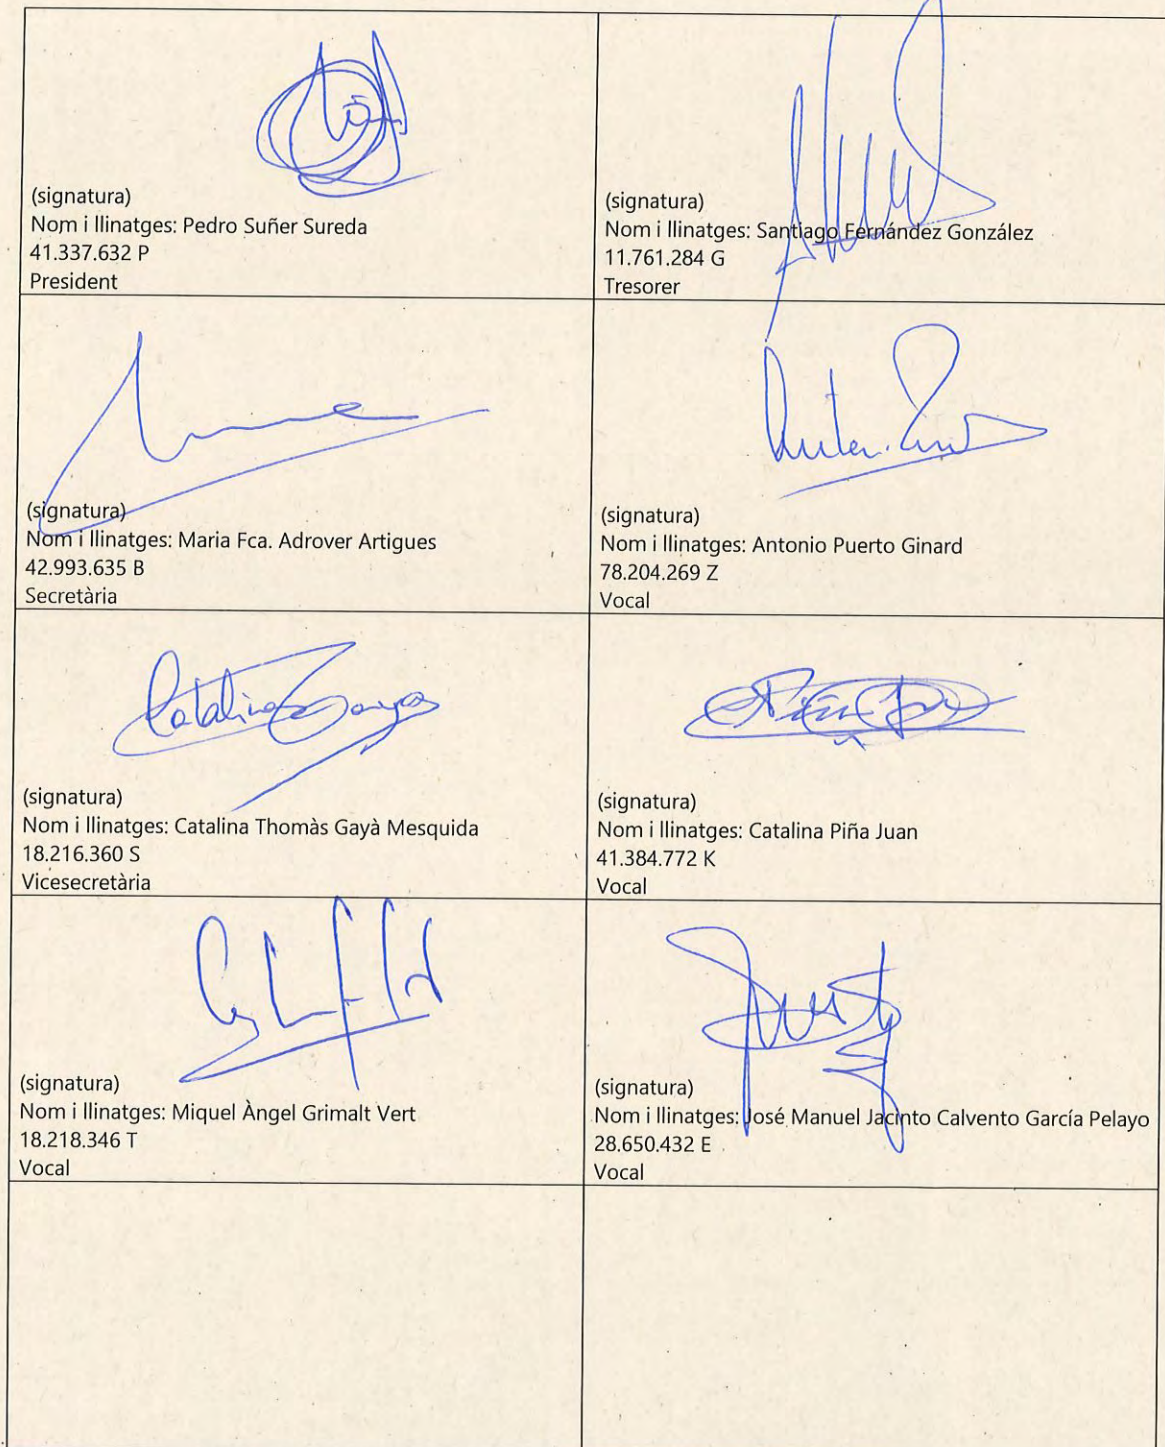 (signatura)
Nom i llinatges: Pedro Suñer Sureda
41.337.632 P
President
(signatura)
Nom i llinatges: Santiago Fernández González
11.761.284 G
Tresorer
(signatura)
Nom i llinatges: Maria Fca. Adrover Artigues
42.993.635 B
Secretària
(signatura)
Nom i llinatges: Antonio Puerto Ginard
78.204.269 Z
Vocal
Catalina Gaya
(signatura)
Nom i llinatges: Catalina Thomàs Gayà Mesquida
18.216.360 S
Vicesecretària
(signatura)
Nom i llinatges: Catalina Piña Juan
41.384.772 K
Vocal
(signatura)
Nom i llinatges: Miquel Àngel Grimalt Vert
18.218.346 T
Vocal
(signatura)
Nom i llinatges: José Manuel Jacinto Calvento García Pelayo
28.650.432 E
Vocal